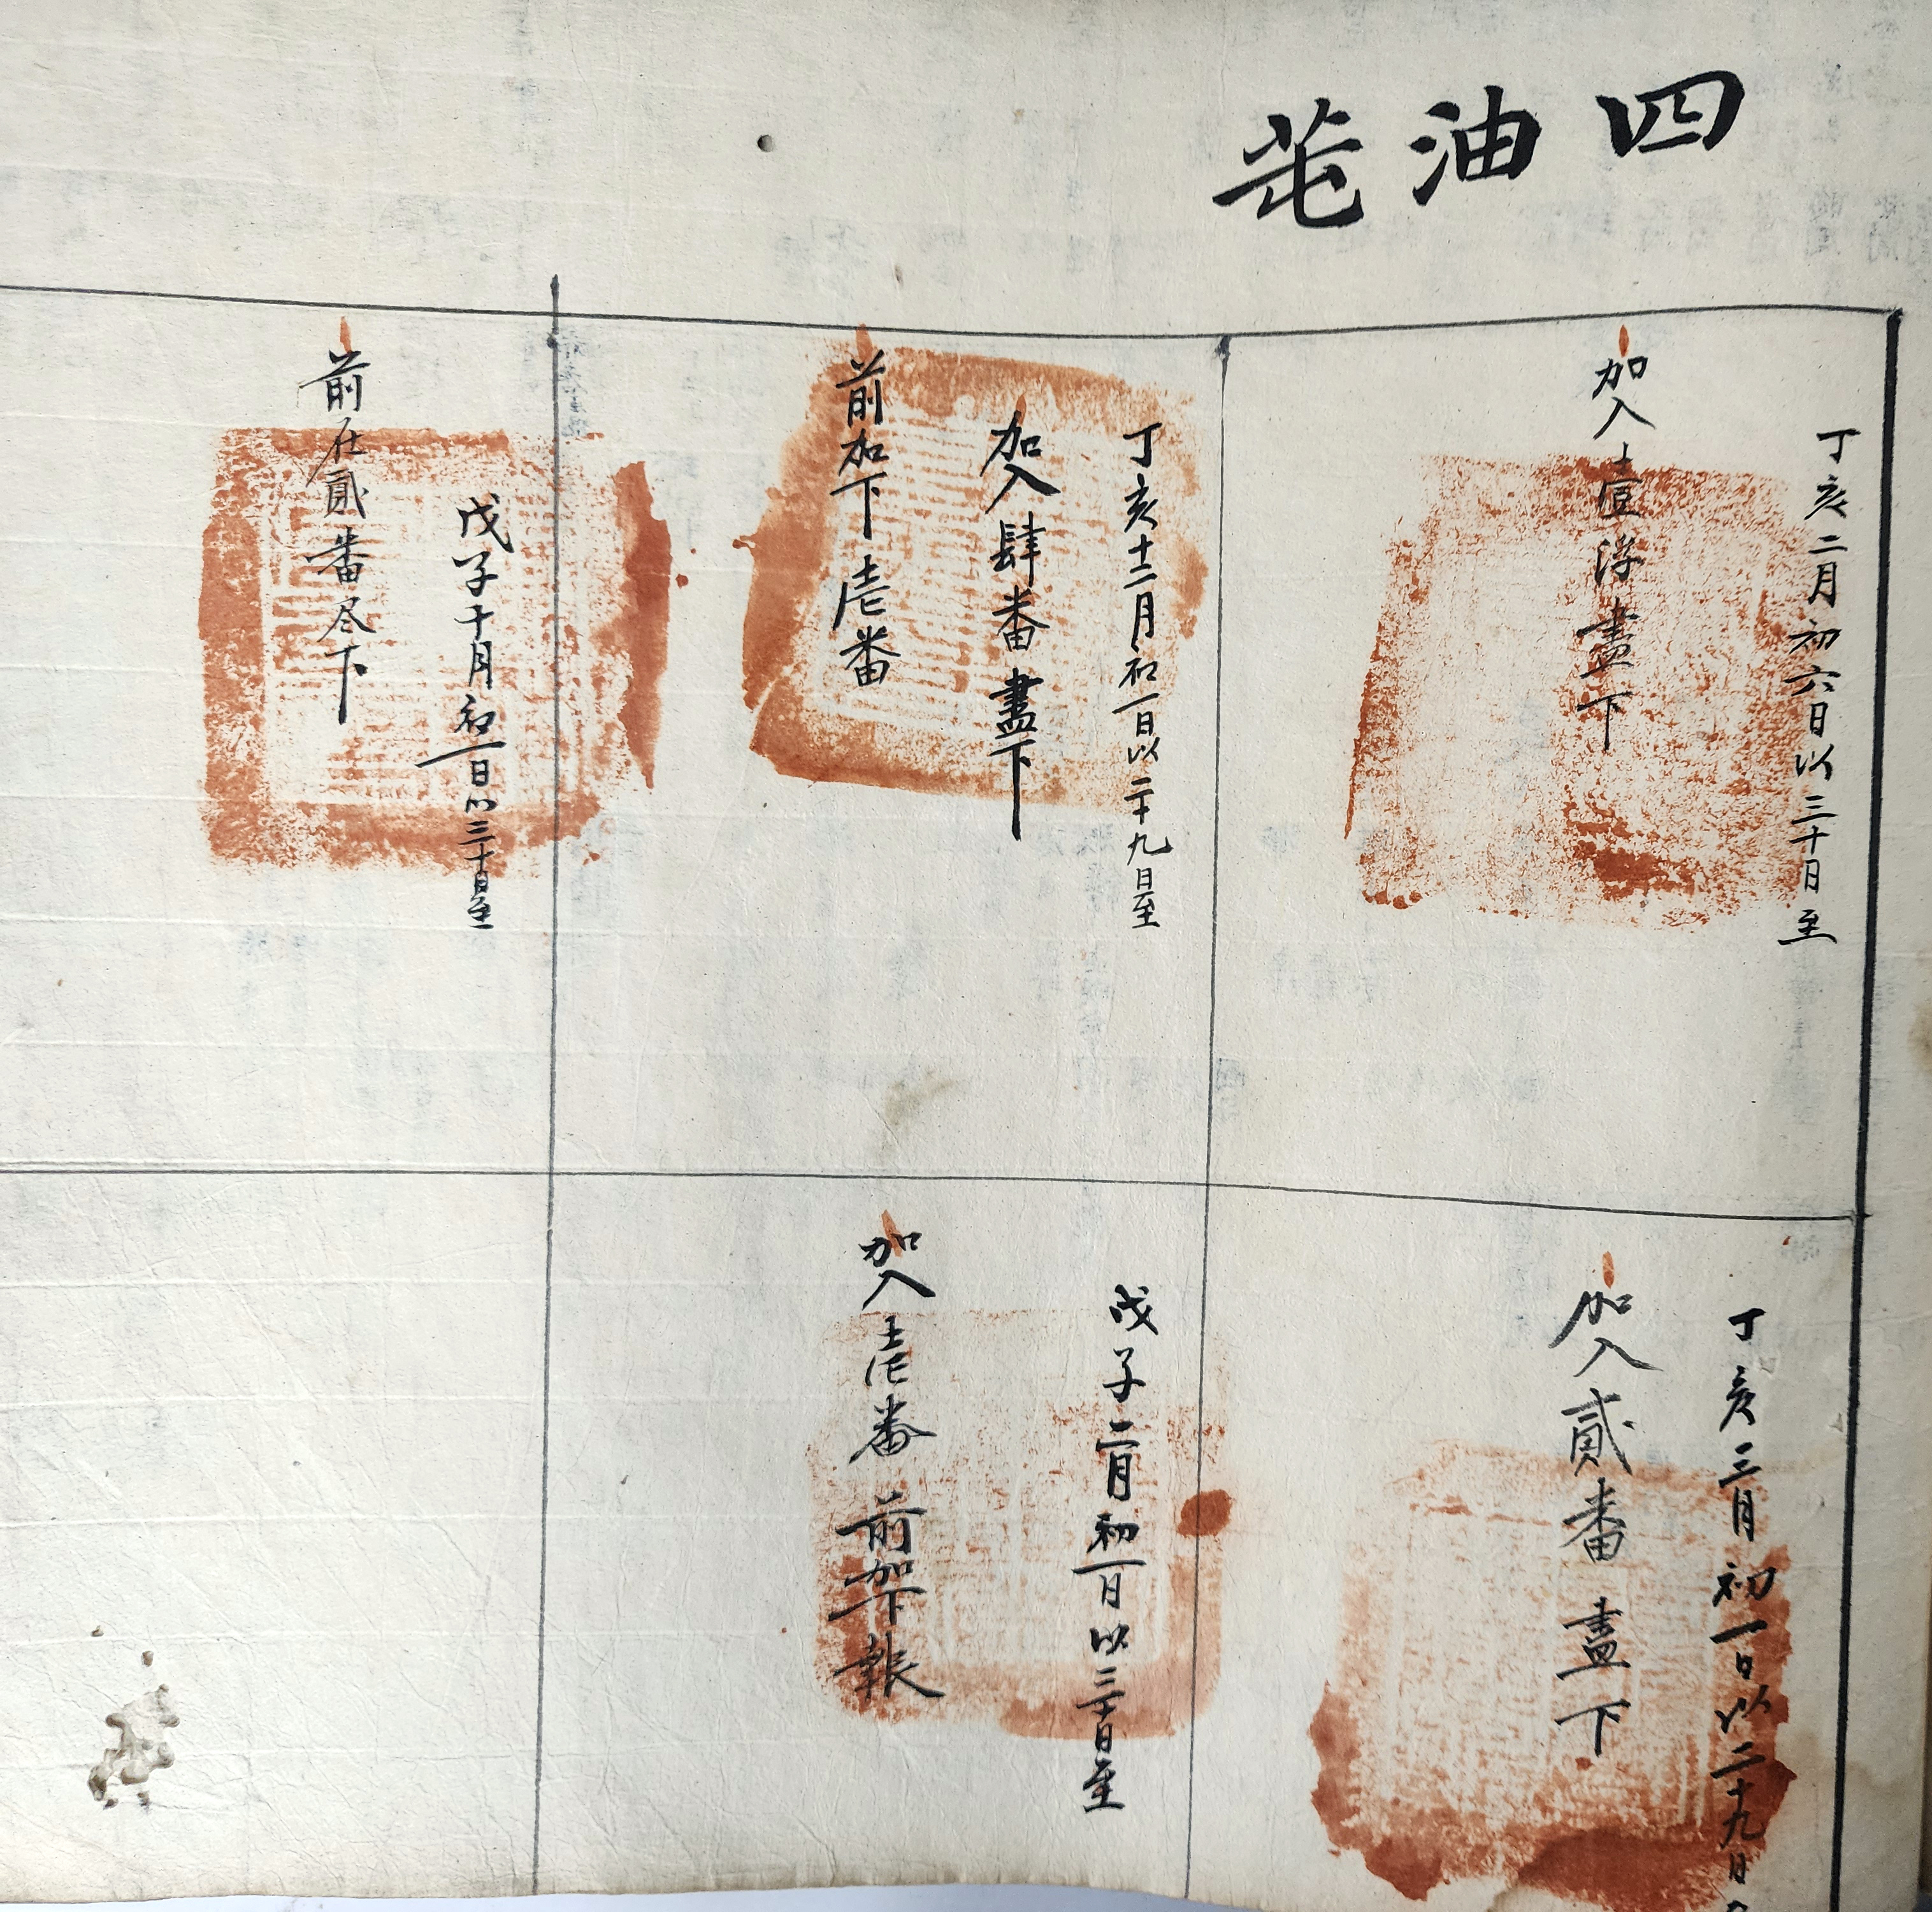 四油芚
丁亥二月初六日以三十日至
加入壹浮盡下
丁亥三月初一日以二十九日
加入貳番盡下
丁亥十二月初一日以二十九日至
加入肆番盡下
前加下壱番
戊子二月初一日以三十日至
加入壱番前加下報
戊子十月初一日以三十日至
前在貳番尽下